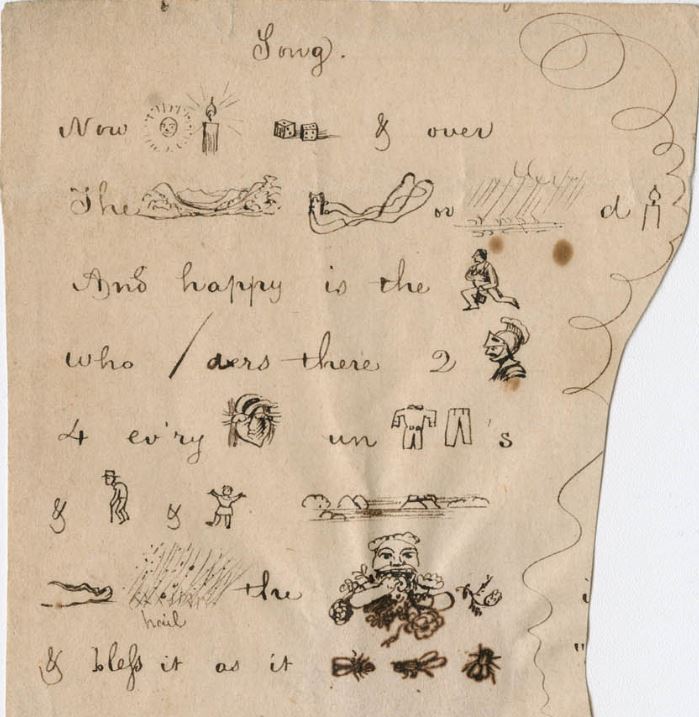 Song.
Now & over
The ov d
And happy is the
who / ders there 2
4 ev'ry un 's
& &
the
hail
& bleſs it as it
"